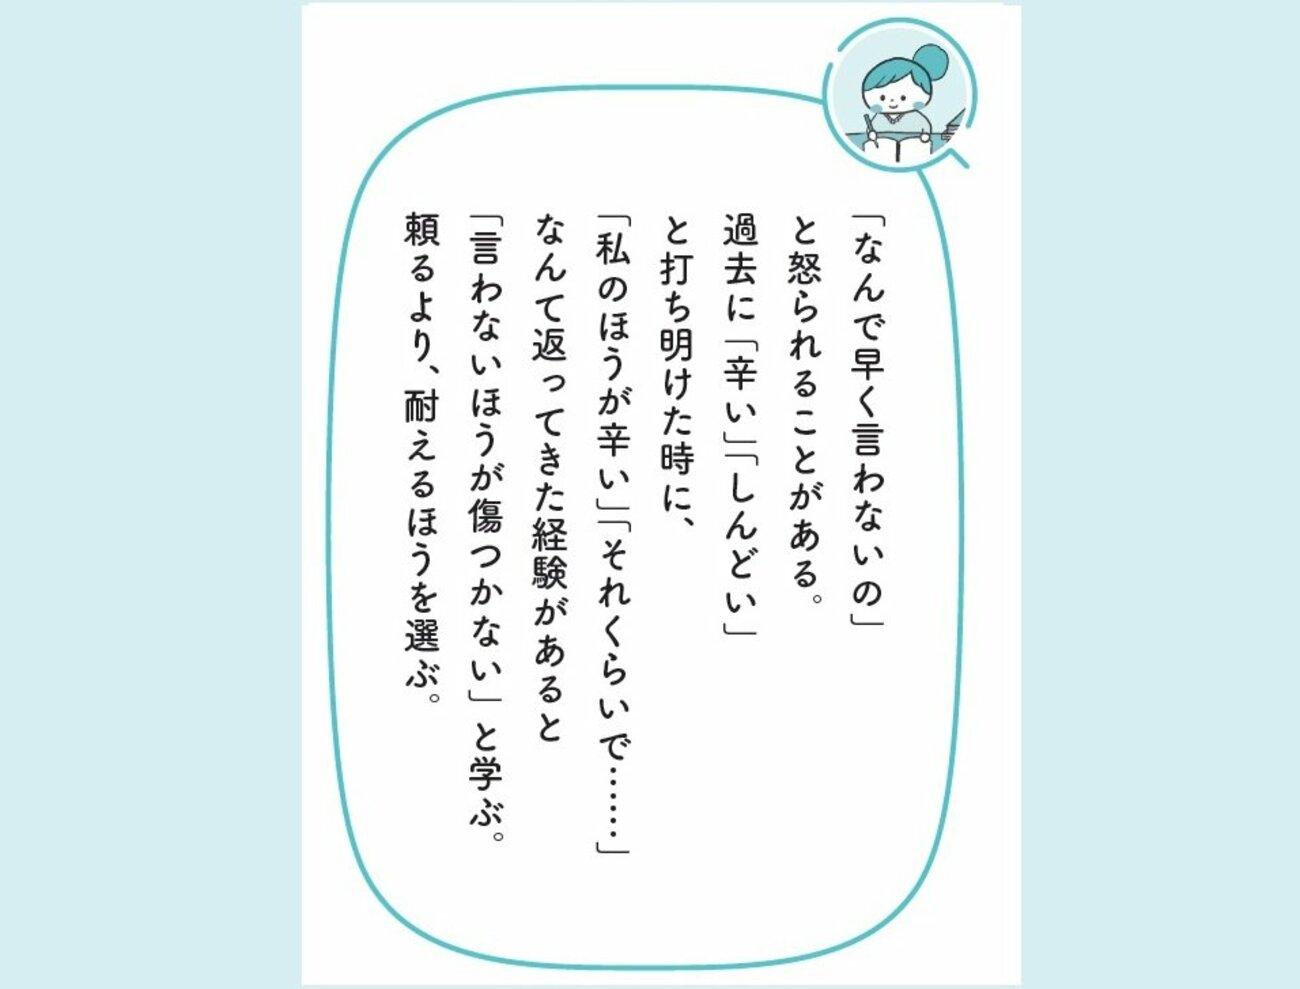 「なんで早く言わないの」
と怒られることがある。
過去に「辛い」「しんどい」
と打ち明けた時に、
「私のほうが辛い」「それくらいで……」
なんて返ってきた経験があると
「言わないほうが傷つかない」と学ぶ。
頼るより、耐えるほうを選ぶ。